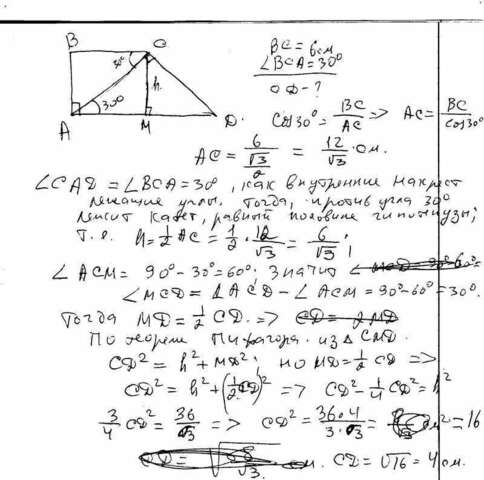 B C
30° h
30°
A M D.
BC = 6см
∠BCA = 30°
CD - ?
Cos30° = BC/AC => AC = BC/Cos30°
AC = 6/(√3/2) = 12/√3 см.
∠CAD = ∠BCA = 30°, как внутренние накрест
лежащие углы. Тогда, против угла 30°
лежит катет, равный половине гипотенузы;
т.е. h = 1/2 AC = 1/2 · 12/√3 = 6/√3;
∠ACM = 90° - 30° = 60°. Значит
∠MCD = ∠ACD - ∠ACM = 90° - 60° = 30°.
Тогда MD = 1/2 CD. => CD = 2MD
По теореме Пифагора из △ CMD.
CD² = h² + MD²; но MD = 1/2 CD =>
CD² = h² + (1/2 CD)² => CD² - 1/4 CD² = h²
3/4 CD² = 36/√3 => CD² = 36·4/3·√3 = = 16
CD = √3. см. CD = √16 = 4 см.